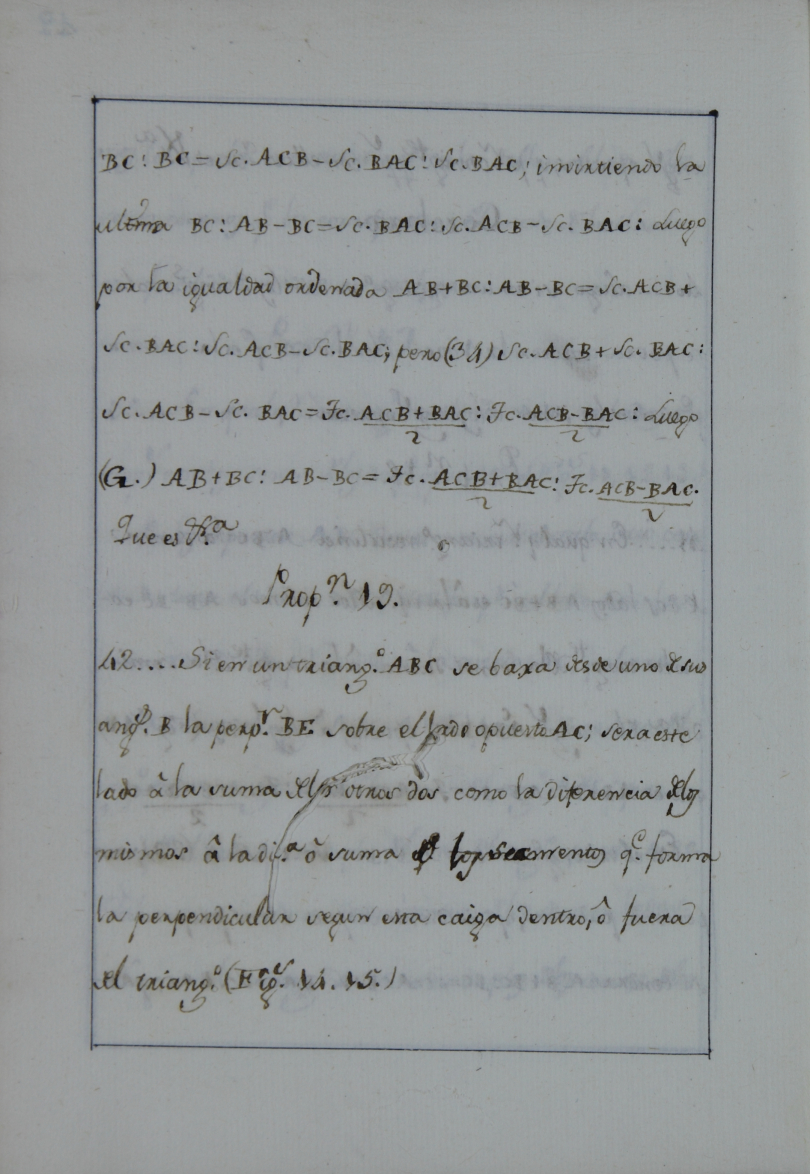 BC: BC = Sc. ACB - Sc. BAC: Sc. BAC; invirtiendo la
ultima BC: AB - BC = Sc. BAC: Sc. ACB - Sc. BAC: Luego
por la igualdad ordenada AB + BC: AB - BC = Sc. ACB +
Sc. BAC: Sc. ACB - Sc. BAC; pero (34) Sc. ACB + Sc. BAC:
Sc. ACB - Sc. BAC = Tc. ACB + BAC: Tc. ACB - BAC: Luego
2 2
(G.) AB + BC: AB - BC = Tc. ACB + BAC: Tc. ACB - BAC.
2 2
Que es &.ª
Prop.ⁿ 19.
42.... Si en un triang.º ABC se baxa desde uno de sus
ang.ˢ B la perp.ʳ BE sobre el lado opuesto AC; sera este
lado â la suma de los otros dos como la diferencia de los
mismos â la di.ª ô suma de los segmentos q.ᵉ forma
la perpendicular segun esta caiga dentro, ô fuera
del triang.º (Fig.ˢ 14. 15.)